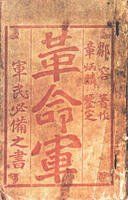 鄒容 著作
章炳麟 鑒定
革命軍
軍民必備之書